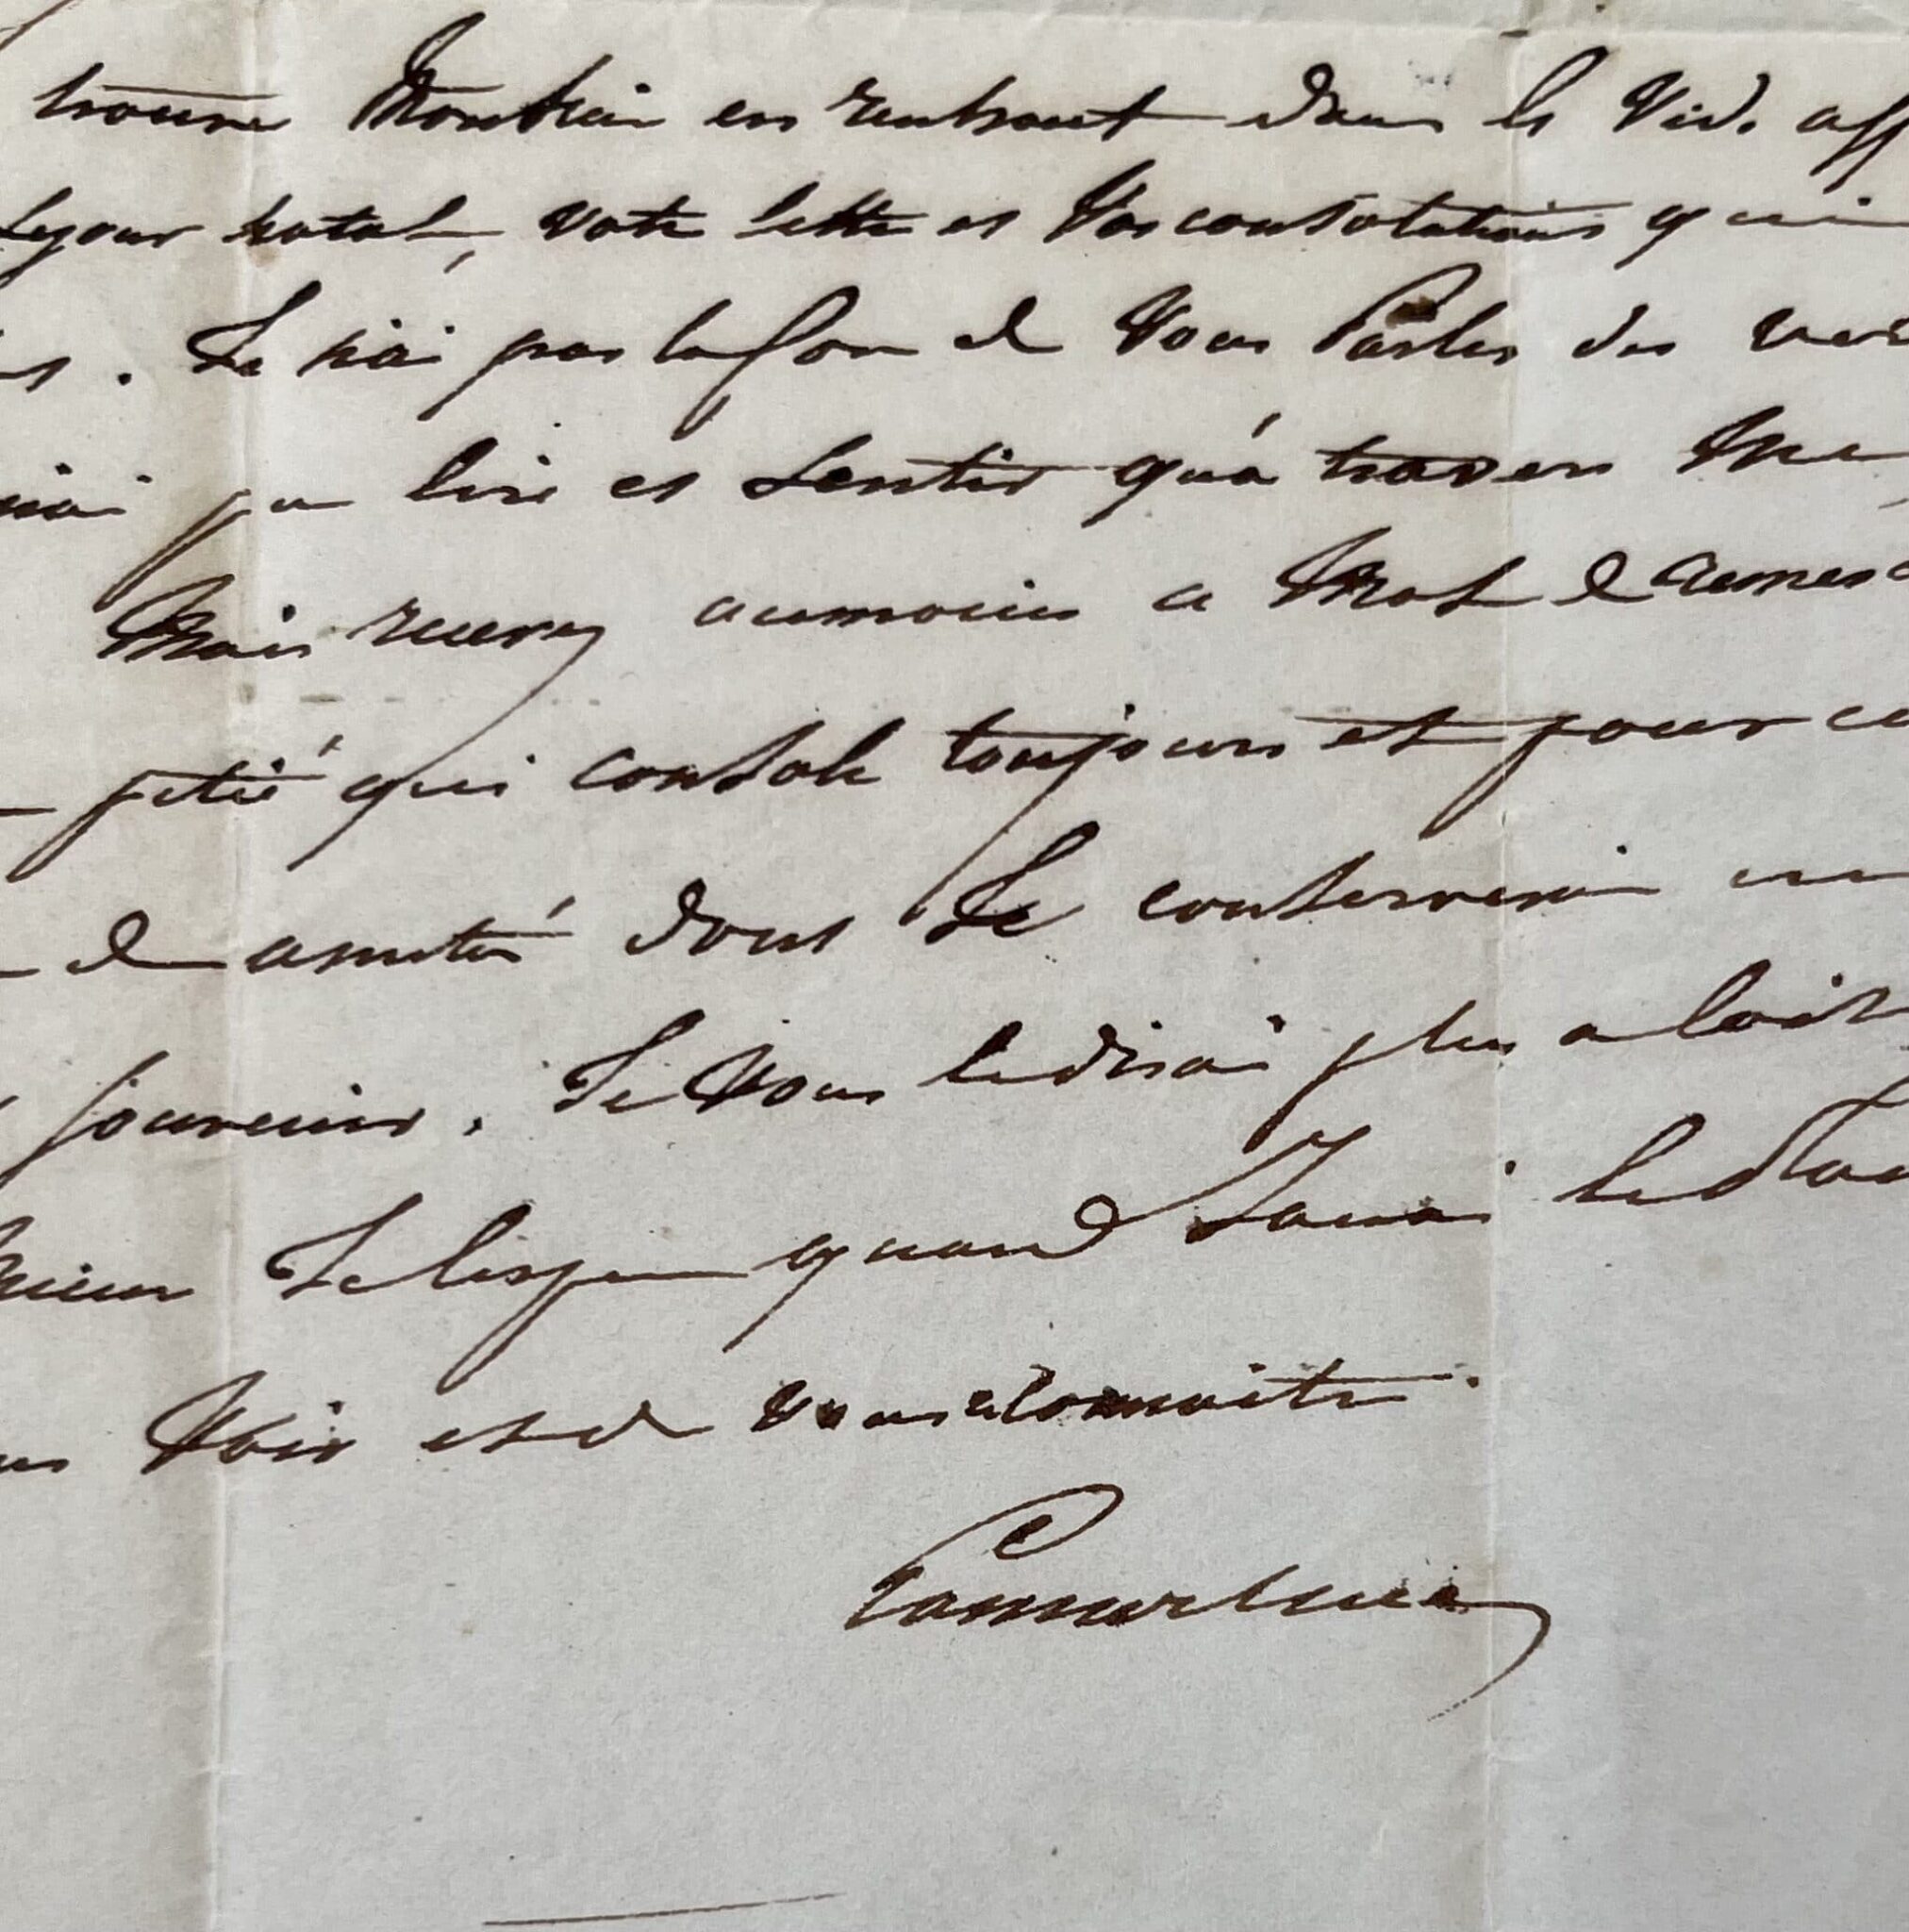 trouve Monsieur en rentrant dans le vide aff
séjour natal, votre lettre et vos consolations qui
Je n'ai pas la force de vous parler des ver
n'ai pu lire et sentir qu'à travers me
Mais recevez au moins ce mot de remer
pitié qui console toujours et pour ce
de amitié dont Je conserverai un
souvenir. Je vous le dirai plus a loisir
mieux Je l'espere quand J'aurai le
voir et de vous connaitre.
Lamartine